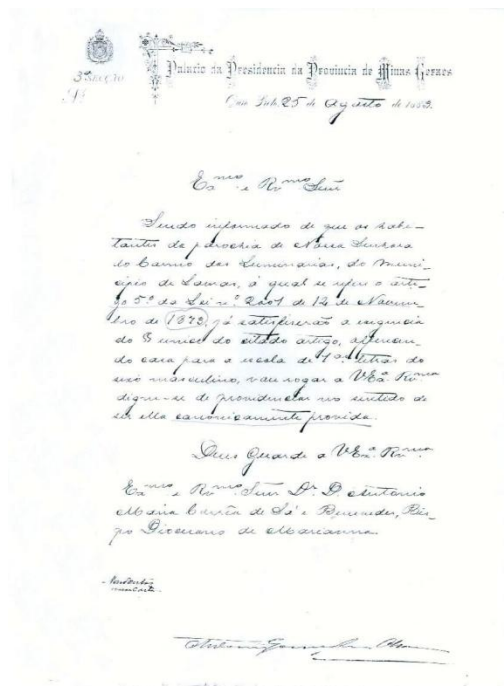 3ª Secção
Palacio da Presidencia da Provincia de Minas Geraes
Ouro Preto 25 de Agosto de 1883.
Exmo e Rvmo Snr
Sendo informado de que os habi-
tantes da parochia de Nossa Senhora
do Carmo das Luminarias, do muni-
cipio de Lavras, á qual se refere o arti-
go 5º da Lei nº 2001 de 14 de Novem-
bro de 1873, já satisfizerão a exigencia
do § unico do citado artigo, offerecen-
do casa para a escola de 1as letras do
sexo masculino, vou rogar a VExª Rvma
digne-se de providenciar no sentido de
ser ella canonicamente provida.
Deus Guarde a VExª Rvma
Exmo e Rvmo Snr Dr D. Antonio
Maria Corrêa de Sá e Benevides, Bis-
po Diocesano de Marianna
Antonio Gonçalves Chaves